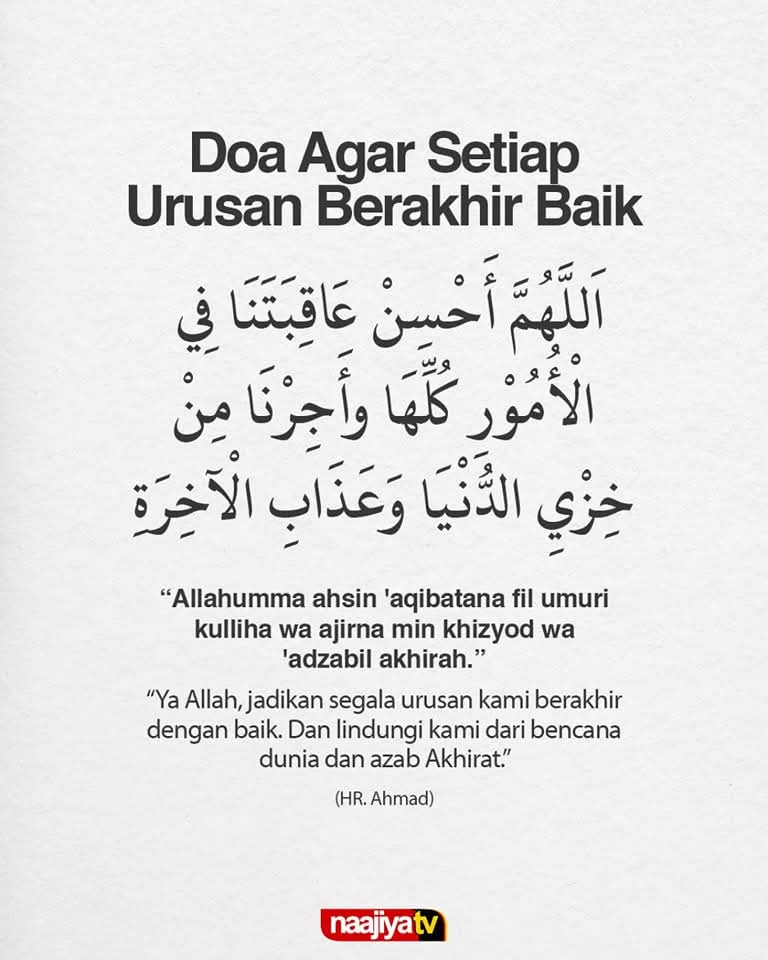 Doa Agar Setiap
Urusan Berakhir Baik
اَللَّهُمَّ أَحْسِنْ عَاقِبَتَنَا فِي
الْأُمُوْرِ كُلِّهَا وأَجِرْنَا مِنْ
خِزْيِ الدُّنْيَا وَعَذَابِ الْآخِرَةِ
“Allahumma ahsin 'aqibatana fil umuri
kulliha wa ajirna min khizyod wa
'adzabil akhirah.”
“Ya Allah, jadikan segala urusan kami berakhir
dengan baik. Dan lindungi kami dari bencana
dunia dan azab Akhirat.”
(HR. Ahmad)
naajiyatv